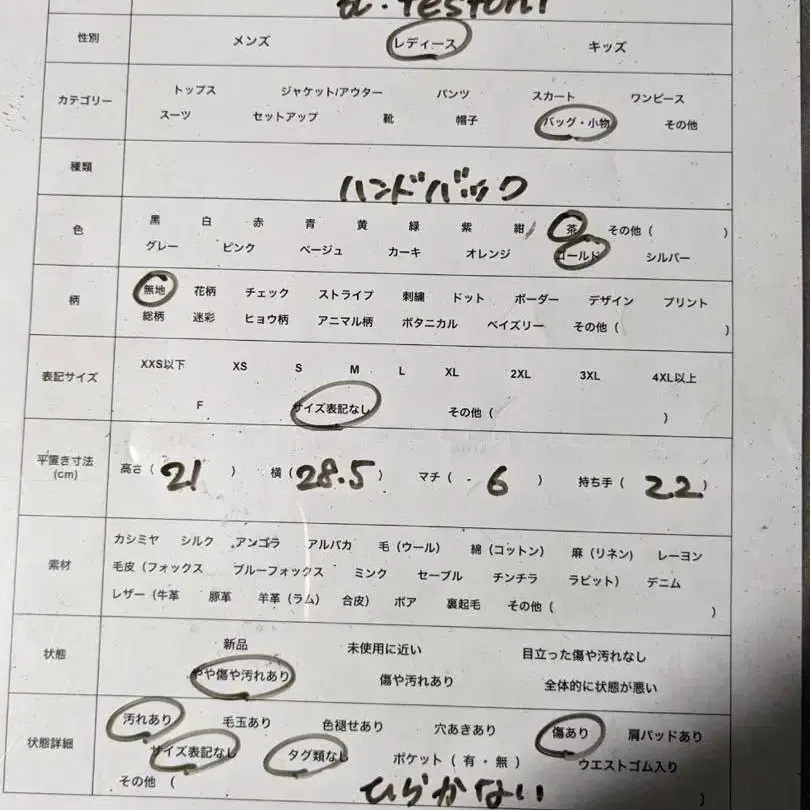 a. testoni
性別 メンズ レディース キッズ
カテゴリー トップス ジャケット/アウター パンツ スカート ワンピース
スーツ セットアップ 靴 帽子 バッグ・小物 その他
種類 ハンドバック
色 黒 白 赤 青 黄 緑 紫 紺 茶 その他 ( )
グレー ピンク ベージュ カーキ オレンジ ゴールド シルバー
柄 無地 花柄 チェック ストライプ 刺繍 ドット ボーダー デザイン プリント
総柄 迷彩 ヒョウ柄 アニマル柄 ボタニカル ペイズリー その他 ( )
表記サイズ XXS以下 XS S M L XL 2XL 3XL 4XL以上
F サイズ表記なし その他 ( )
平置き寸法 (cm) 高さ ( 21 ) 横 ( 28.5 ) マチ ( 6 ) 持ち手 ( 22 )
素材 カシミヤ シルク アンゴラ アルパカ 毛 (ウール) 綿 (コットン) 麻 (リネン) レーヨン
毛皮 (フォックス ブルーフォックス ミンク セーブル チンチラ ラビット) デニム
レザー (牛革 豚革 羊革 (ラム) 合皮) ボア 裏起毛 その他 ( )
状態 新品 未使用に近い 目立った傷や汚れなし
やや傷や汚れあり 傷や汚れあり 全体的に状態が悪い
状態詳細 汚れあり 毛玉あり 色褪せあり 穴あきあり 傷あり 肩パッドあり
サイズ表記なし タグ類なし ポケット ( 有・無 ) ウエストゴム入り
その他 ( ひらかない )